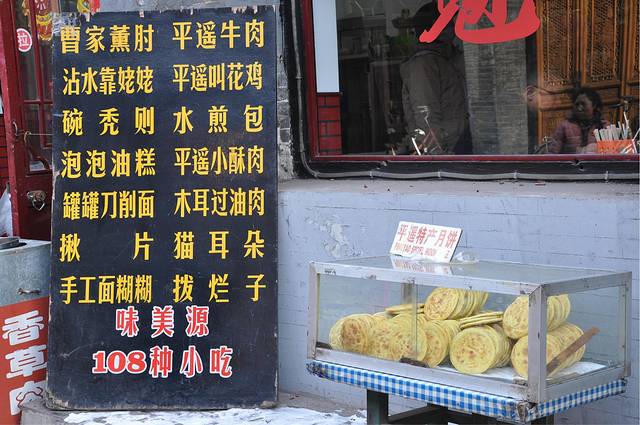 曹家薰肘 平遥牛肉
沾水靠姥姥 平遥叫花鸡
碗秃则 水煎包
泡泡油糕 平遥小酥肉
罐罐刀削面 木耳过油肉
揪片 猫耳朵
手工面糊糊 拨烂子
味美源
108种小吃
平遥特产月饼
香草肉